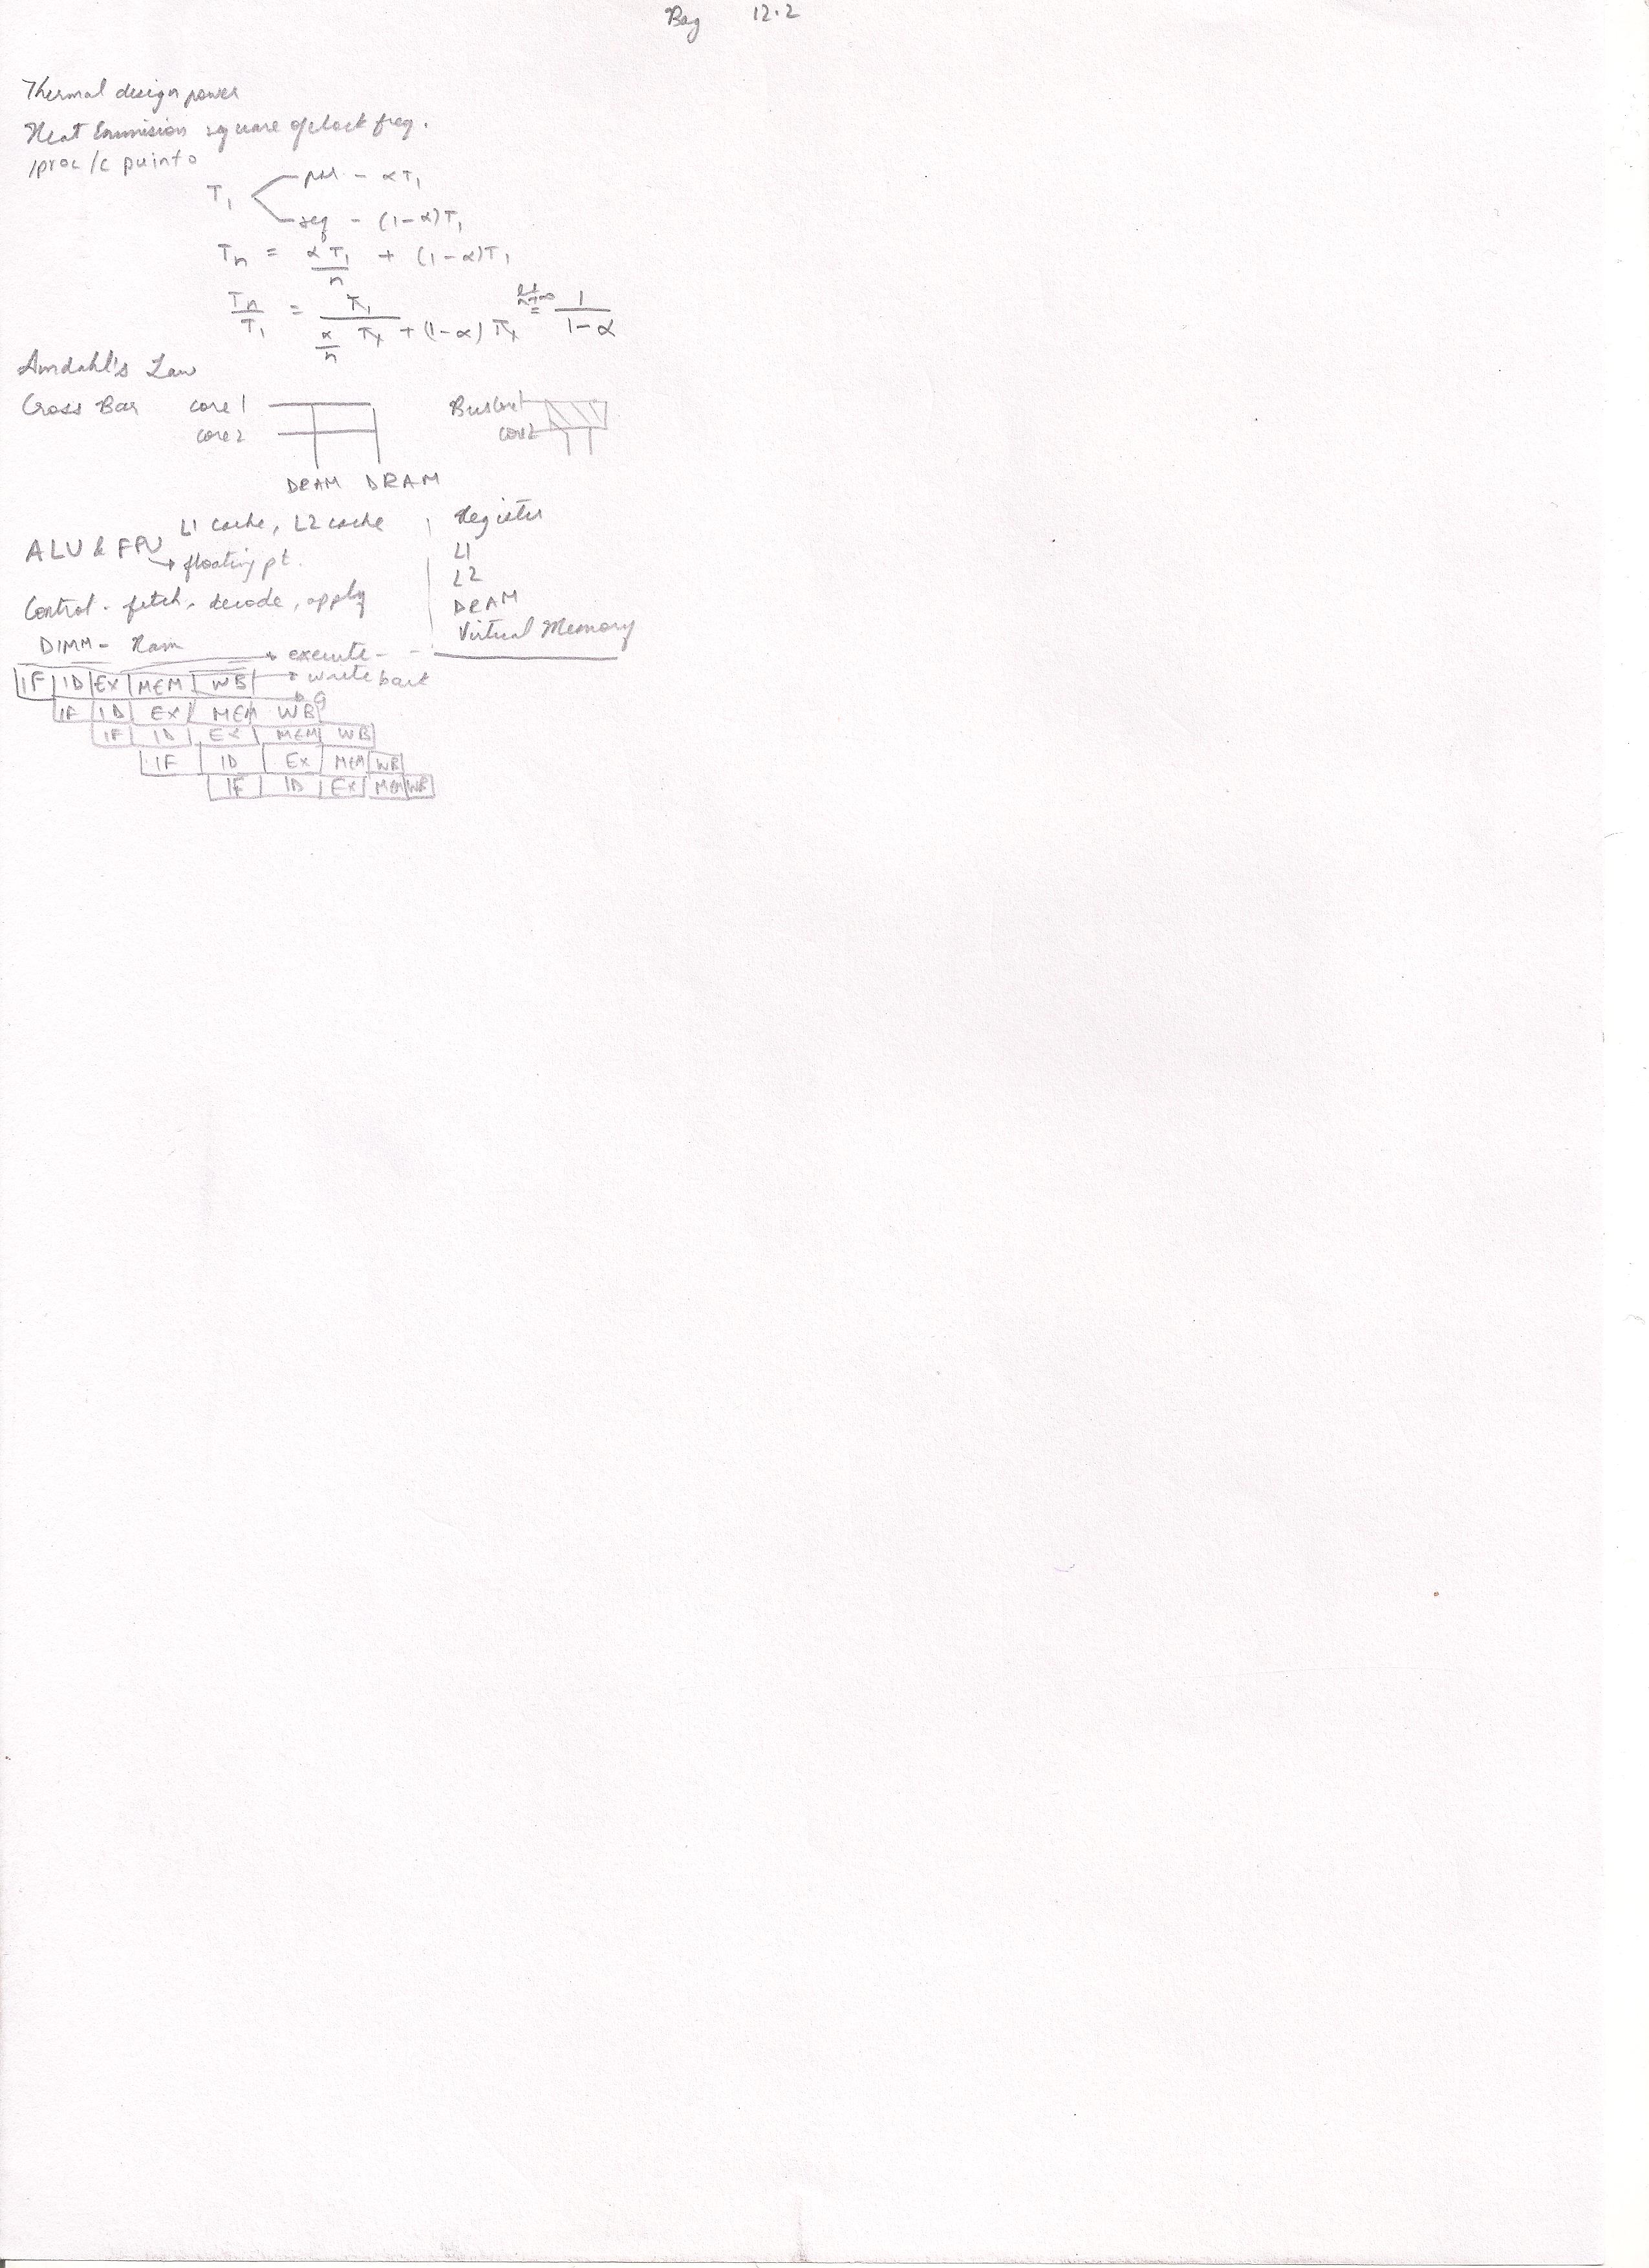 Bag 12.2
Thermal design power
Heat Emmision square of clock freq.
/proc/cpuinfo
T₁ - αT₁
seq - (1-α)T₁
Tn = αT₁/n + (1-α)T₁
Tn/T₁ = T₁ / (α/n T₁ + (1-α) T₁) = 1/(1-α)
Amdahl's Law
Cross Bar core 1
core 2
DRAM DRAM
Bus core 1
core 2
L1 cache, L2 cache
ALU & FPU
→ floating pt.
Control - fetch, decode, apply
DIMM - Ram
Register
L1
L2
DRAM
Virtual Memory
→ execute -
IF ID EX MEM WB → write back
IF ID EX MEM WB
IF ID EX MEM WB
IF ID EX MEM WB
IF ID EX MEM WB